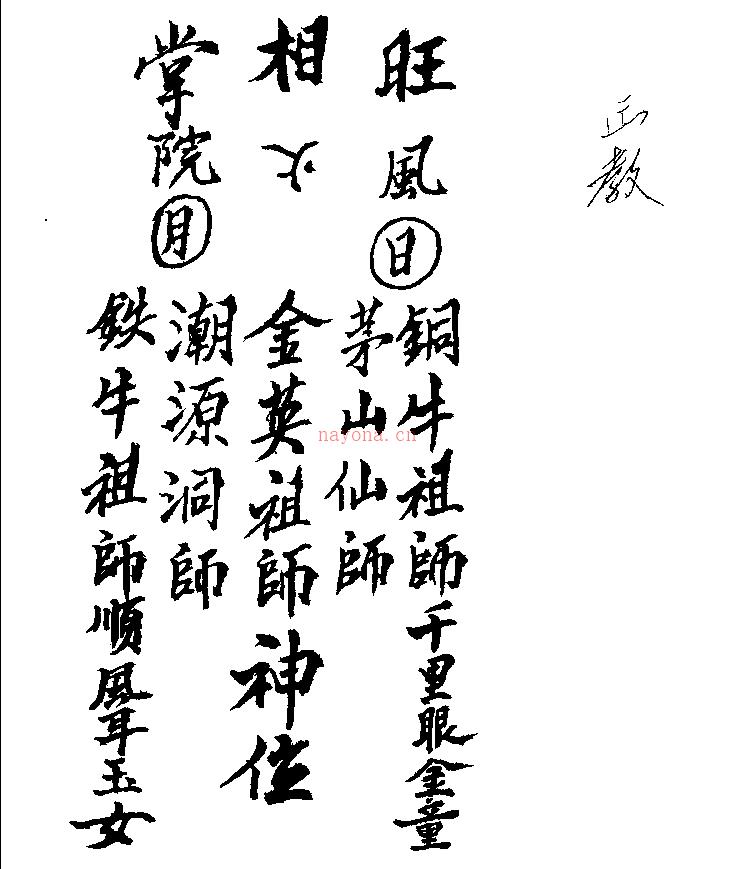 正教
旺相掌
風火院
日月
銅牛祖師千里眼金童
茅山仙師
金英祖師神位
潮源洞師
鉄牛祖師順風耳玉女
nayona.cn